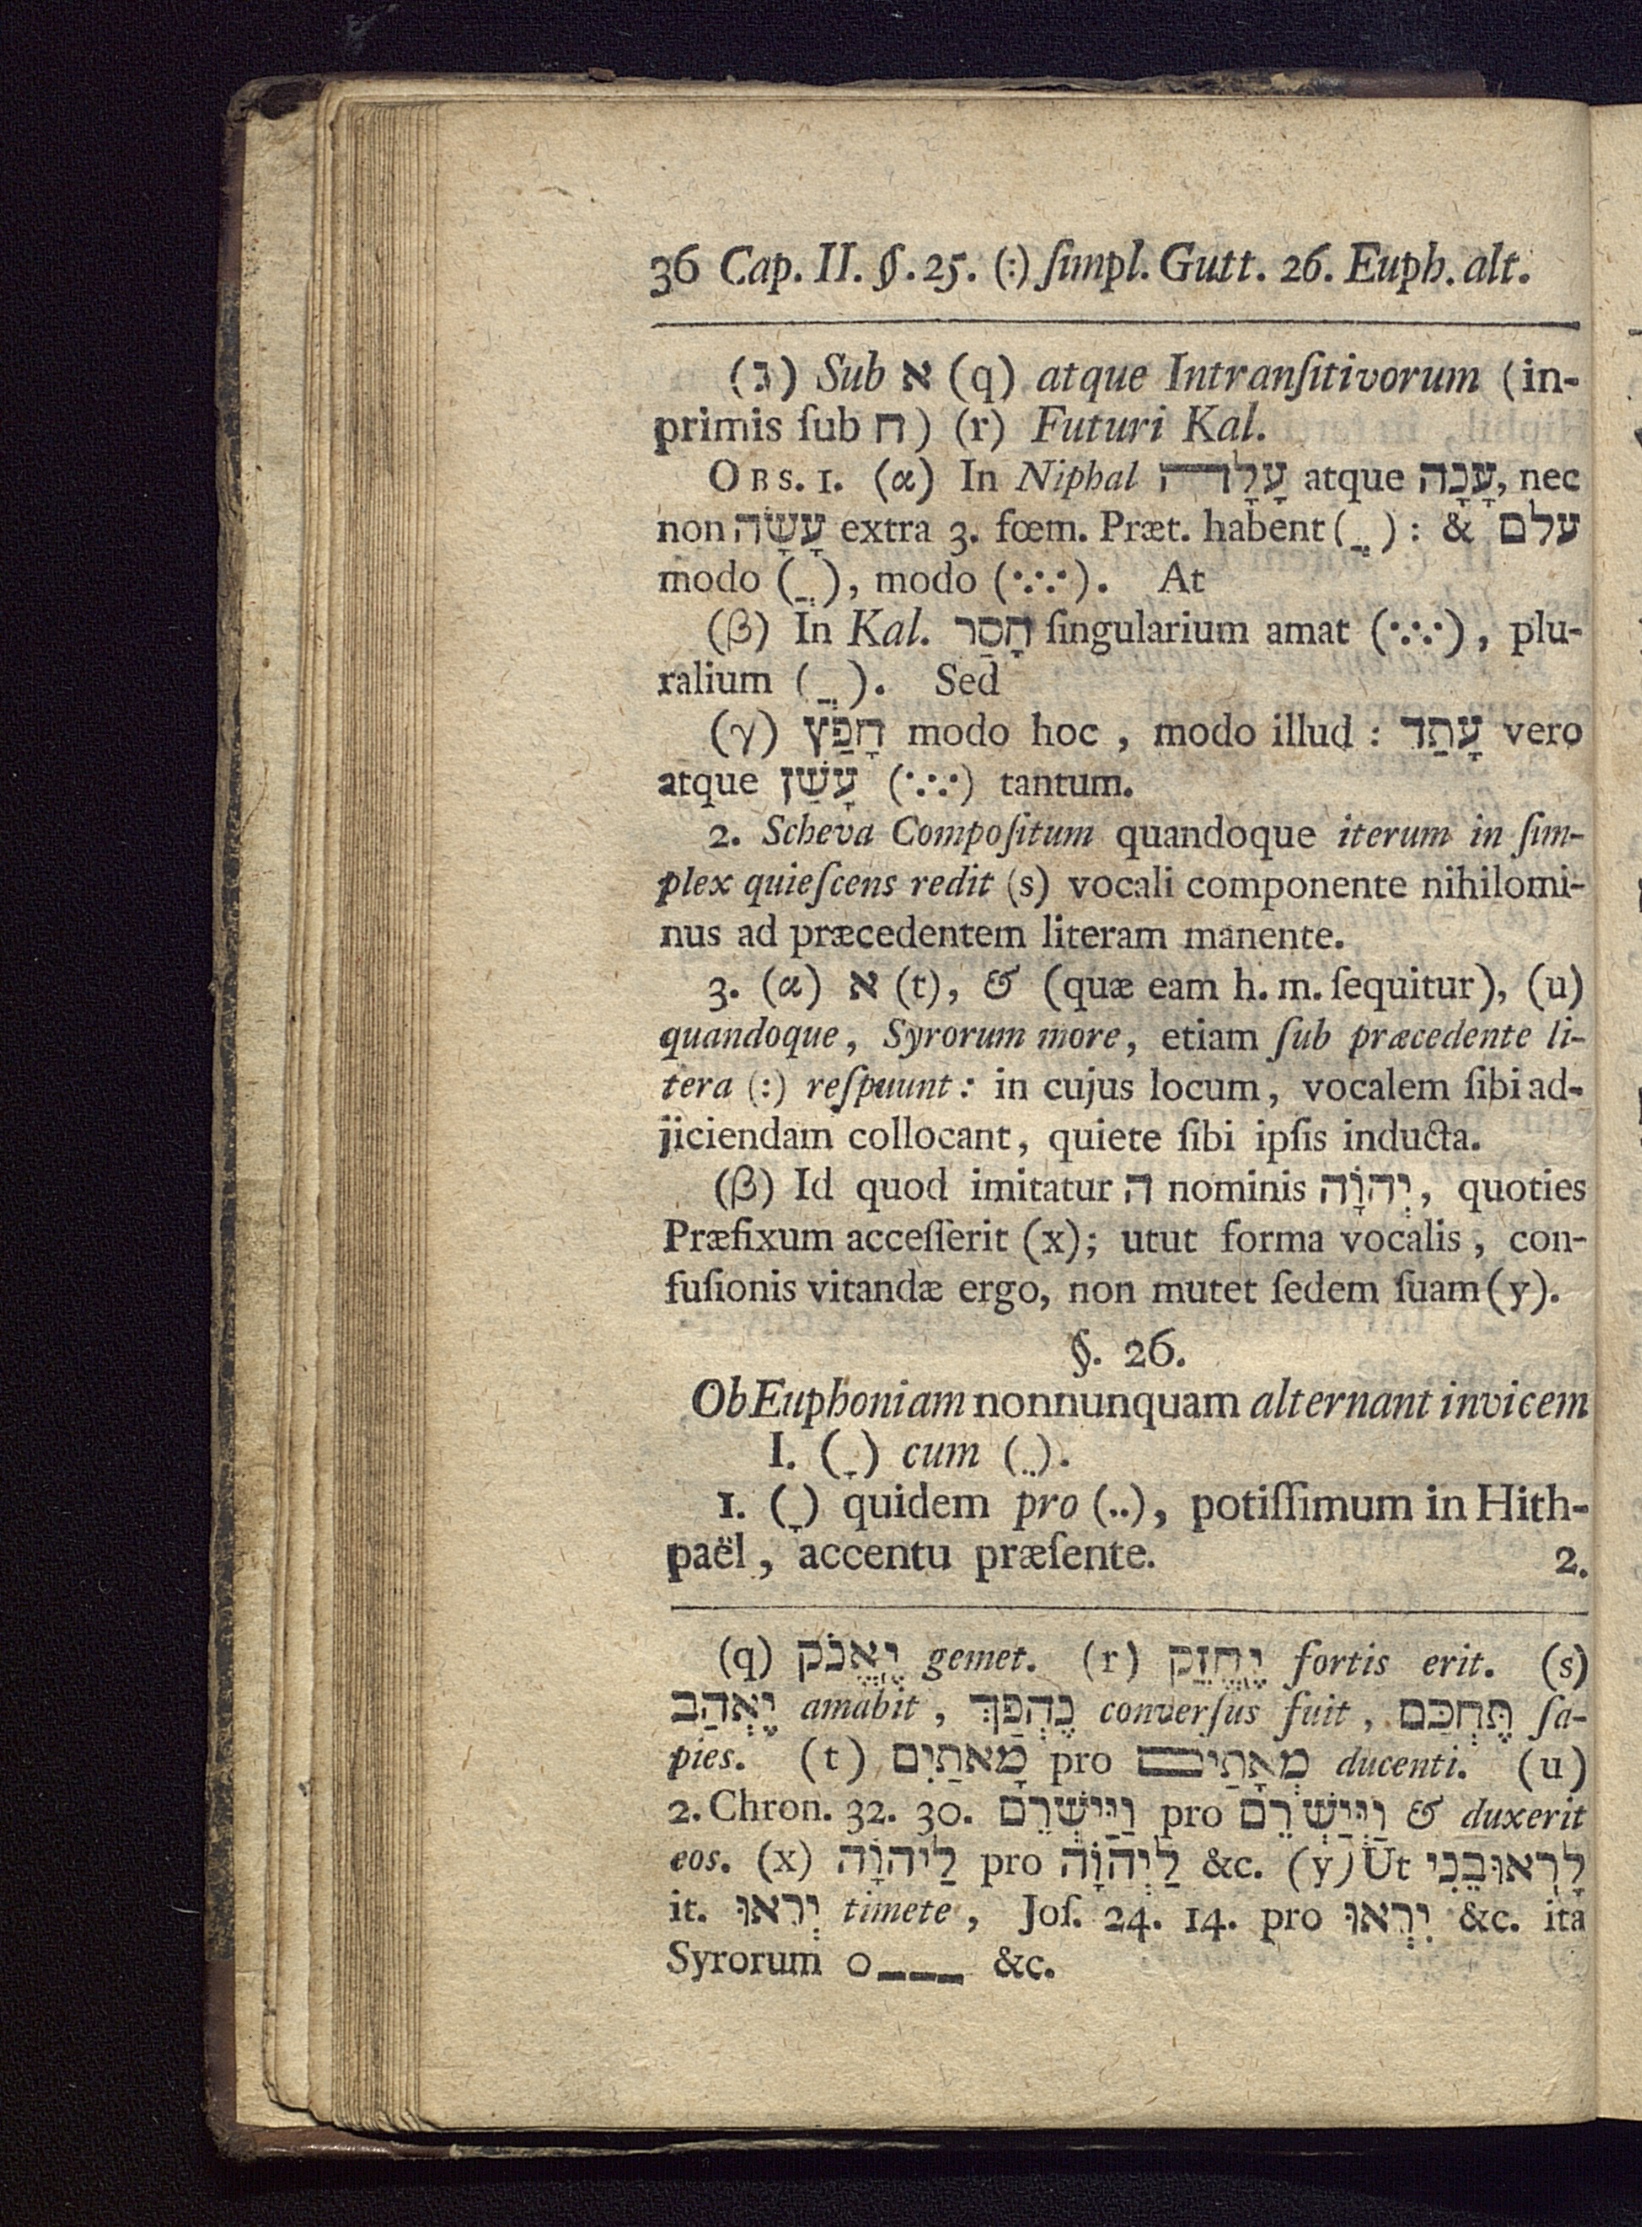 36 Cap. II. §. 25. (:) ſimpl. Gutt. 26. Euph. alt.
(ג) Sub א (q) atque Intranſitivorum (in-
primis ſub ח) (r) Futuri Kal.
OBS. 1. (α) In Niphal עָלָה atque עָנָה, nec
non עָשָׂה extra 3. fœm. Præt. habent (ֲ) : & עלם
modo (ֲ), modo (ֱ). At
(β) In Kal. חָסַר ſingularium amat (ֱ), plu-
ralium (ֲ). Sed
(γ) חָפַץ modo hoc, modo illud : עָתַד vero
atque עָשַׁן (ֱ) tantum.
2. Scheva Compoſitum quandoque iterum in ſim-
plex quieſcens redit (s) vocali componente nihilomi-
nus ad præcedentem literam manente.
3. (α) א (t), & (quæ eam h. m. ſequitur), (u)
quandoque, Syrorum more, etiam ſub præcedente li-
tera (:) reſpuunt: in cujus locum, vocalem ſibi ad-
jiciendam collocant, quiete ſibi ipſis inducta.
(β) Id quod imitatur ה nominis יְהוָֹה, quoties
Præfixum acceſſerit (x); utut forma vocalis, con-
fuſionis vitandæ ergo, non mutet ſedem ſuam (y).
§. 26.
Ob Euphoniam nonnunquam alternant invicem
I. (ָ) cum (ֵ).
1. (ָ) quidem pro (..), potiſſimum in Hith-
paël, accentu præſente. 2.
(q) יֶאֱנֹק gemet. (r) יֶחֱזַק fortis erit. (s)
יֶאְהַב amabit, נֶהְפַּךְ converſus fuit, תֶּחְכַּם ſa-
pies. (t) מָאתַיִם pro מְאָתַיִם ducenti. (u)
2. Chron. 32. 30. וַיַּישְּׁרֵם pro וַיְיַשְּׁרֵם & duxerit
eos. (x) לַיהוָֹה pro לַיְהוָֹה &c. (y) Ut לָרְאוּבֵנִי
it. יְראוּ timete, Joſ. 24. 14. pro יִרְאוּ &c. ita
Syrorum o___ &c.